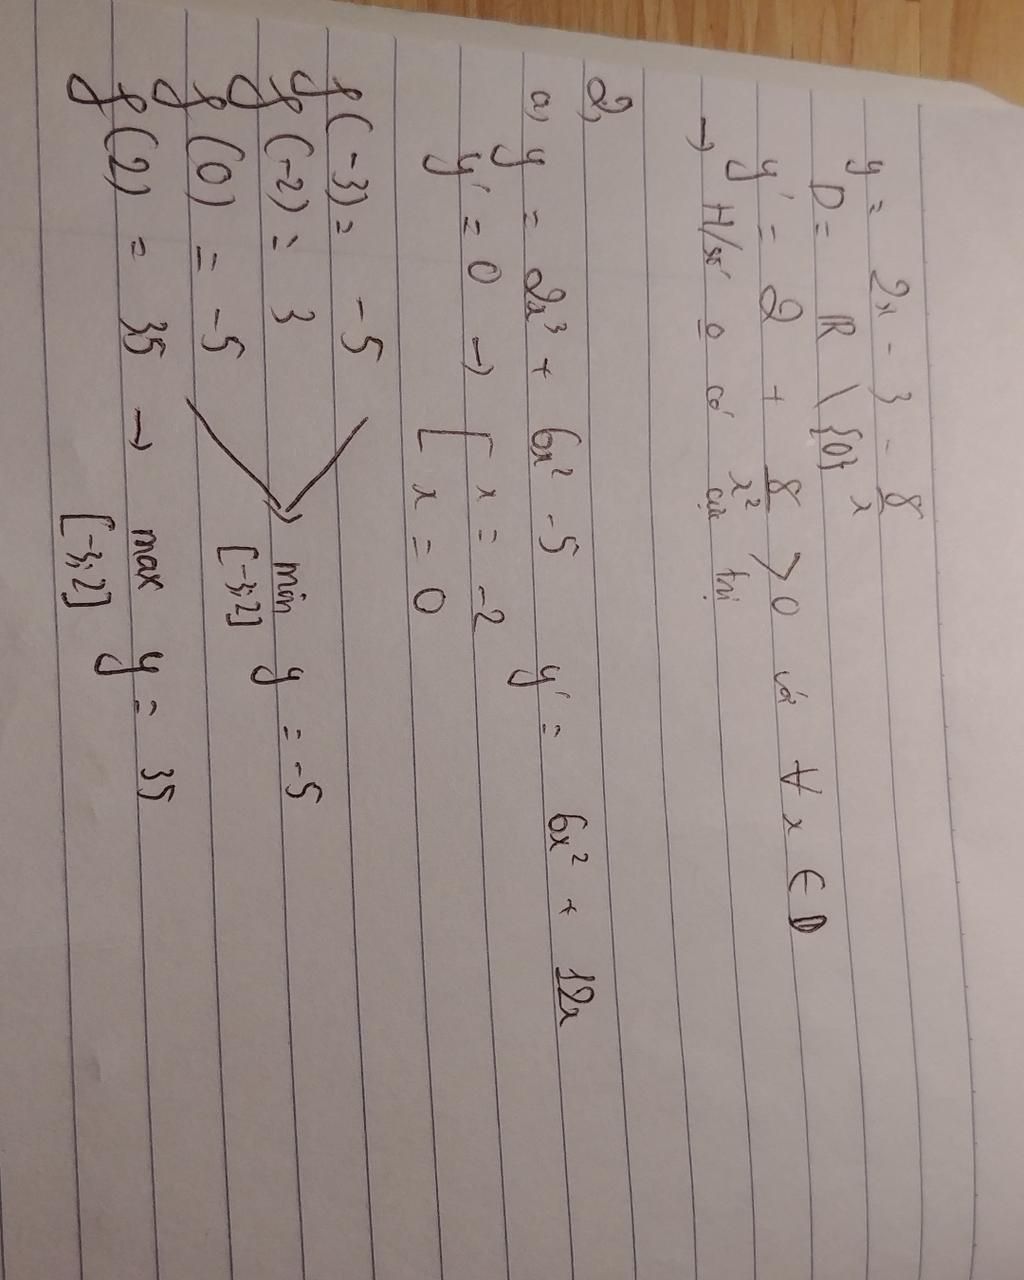 y = 2x - 3 - 8/x
D = ℝ \ {0}
y' = 2 + 8/x² > 0 với ∀ x ∈ D
→ H/số o có cực trị
2,
a, y = 2x³ + 6x² - 5 y' = 6x² + 12x
y' = 0 → [ x = -2
x = 0
f(-3) = -5
f(-2) = 3
f(0) = -5
min y = -5
[-3;2]
f(2) = 35 → max y = 35
[-3;2]